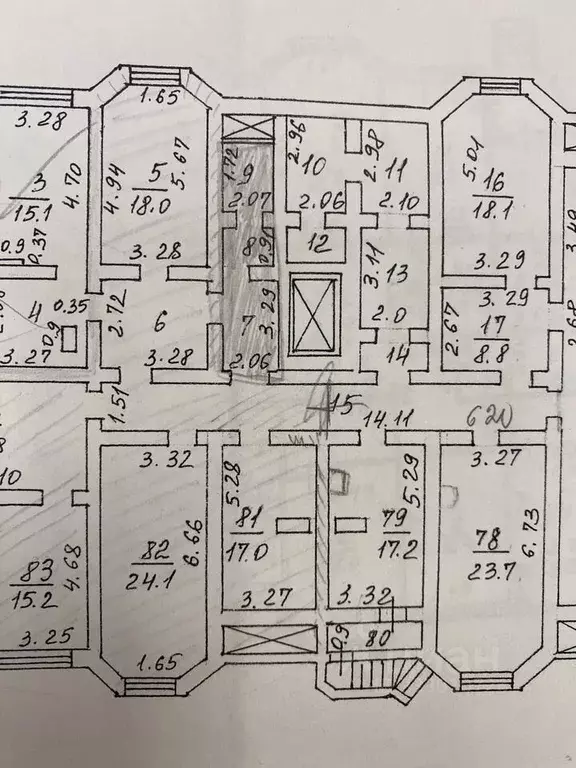 1.65
3.28
3
15.1
4.70
0.9
0.37
4.94
5
18.0
5.67
3.28
1.72
9
2.07
8
0.90
2.96
10
2.06
12
2.98
11
2.10
5.01
16
18.1
3.29
3.40
4
0.35
0.9
3.27
2.72
6
3.28
7
3.29
2.06
3.11
13
2.0
14
3.29
2.67
17
8.8
2.68
1.51
15
14.11
620
10
3.32
82
24.1
6.66
1.65
5.28
81
17.0
3.27
79
17.2
5.29
3.32
0.9
80
3.27
78
23.7
6.73
83
15.2
4.68
3.25